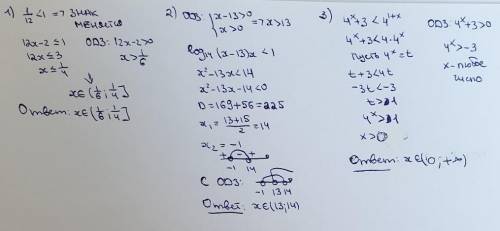 1) 1/12 < 1 => ЗНАК
МЕНЯЕТСЯ
12x-2 ≤ 1 ОДЗ: 12x-2>0
12x ≤ 3 x > 1/6
x ≤ 1/4
x∈(1/6; 1/4]
Ответ: x∈(1/6; 1/4]
2) ОДЗ: { x-13>0
x>0 => x>13
log14 (x-13)x < 1
x²-13x<14
x²-13x-14<0
D=169+56=225
x₁ = 13+15/2 = 14
x₂ = -1
+ - +
-1 14
С ОДЗ:
-1 13 14
Ответ: x∈(13;14)
3) 4ˣ+3 < 4¹⁺ˣ ОДЗ: 4ˣ+3>0
4ˣ+3<4·4ˣ 4ˣ>-3
Пусть 4ˣ=t x-любое
число
t+3<4t
-3t<-3
t>1
4ˣ>1
x>0
Ответ: x∈(0; +∞)